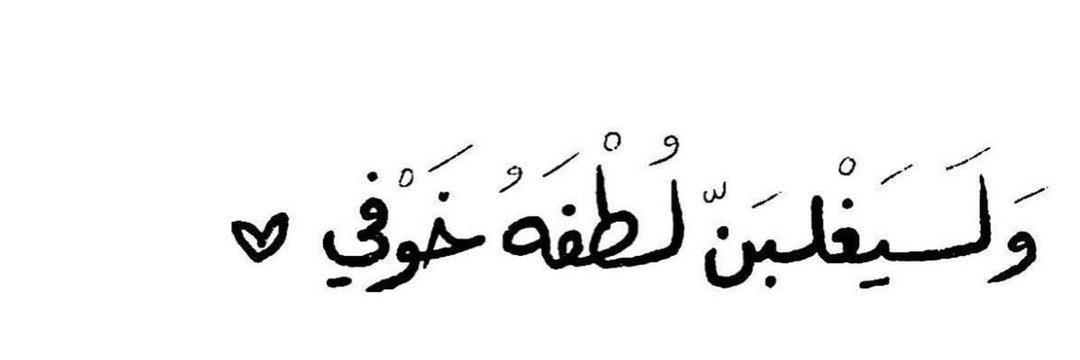 وَلَسَيَغْلبَنّ لُطْفَهُ خَوْفي ♡